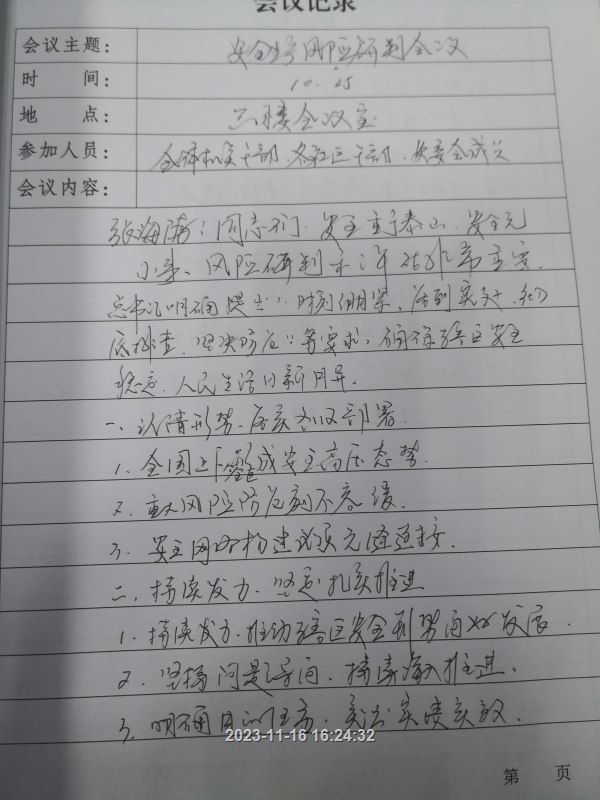 会议记录
会议主题： 安全生产风险研判会议
时 间： 10.25
地 点： 三楼会议室
参加人员： 全体机关干部、各社区干部、安委会成员
会议内容：
同志们，安全重于泰山，安全无
小事，风险研判
总书记明确提出"时刻绷紧、落到实处、彻
底排查、坚决防范"等要求，确保辖区安全
稳定、人民生活日新月异。
一、认清形势、落实会议部署
1、全国上下形成安全高压态势。
2、重大风险防范刻不容缓。
3、安全网络构建必须无缝连接。
二、持续发力、坚定扎实推进
1、持续发力，推动辖区安全形势向好发展。
2、坚持问题导向，持续深入推进。
3、明确目的任务，实实效。
2023-11-16 16:24:32
第 页